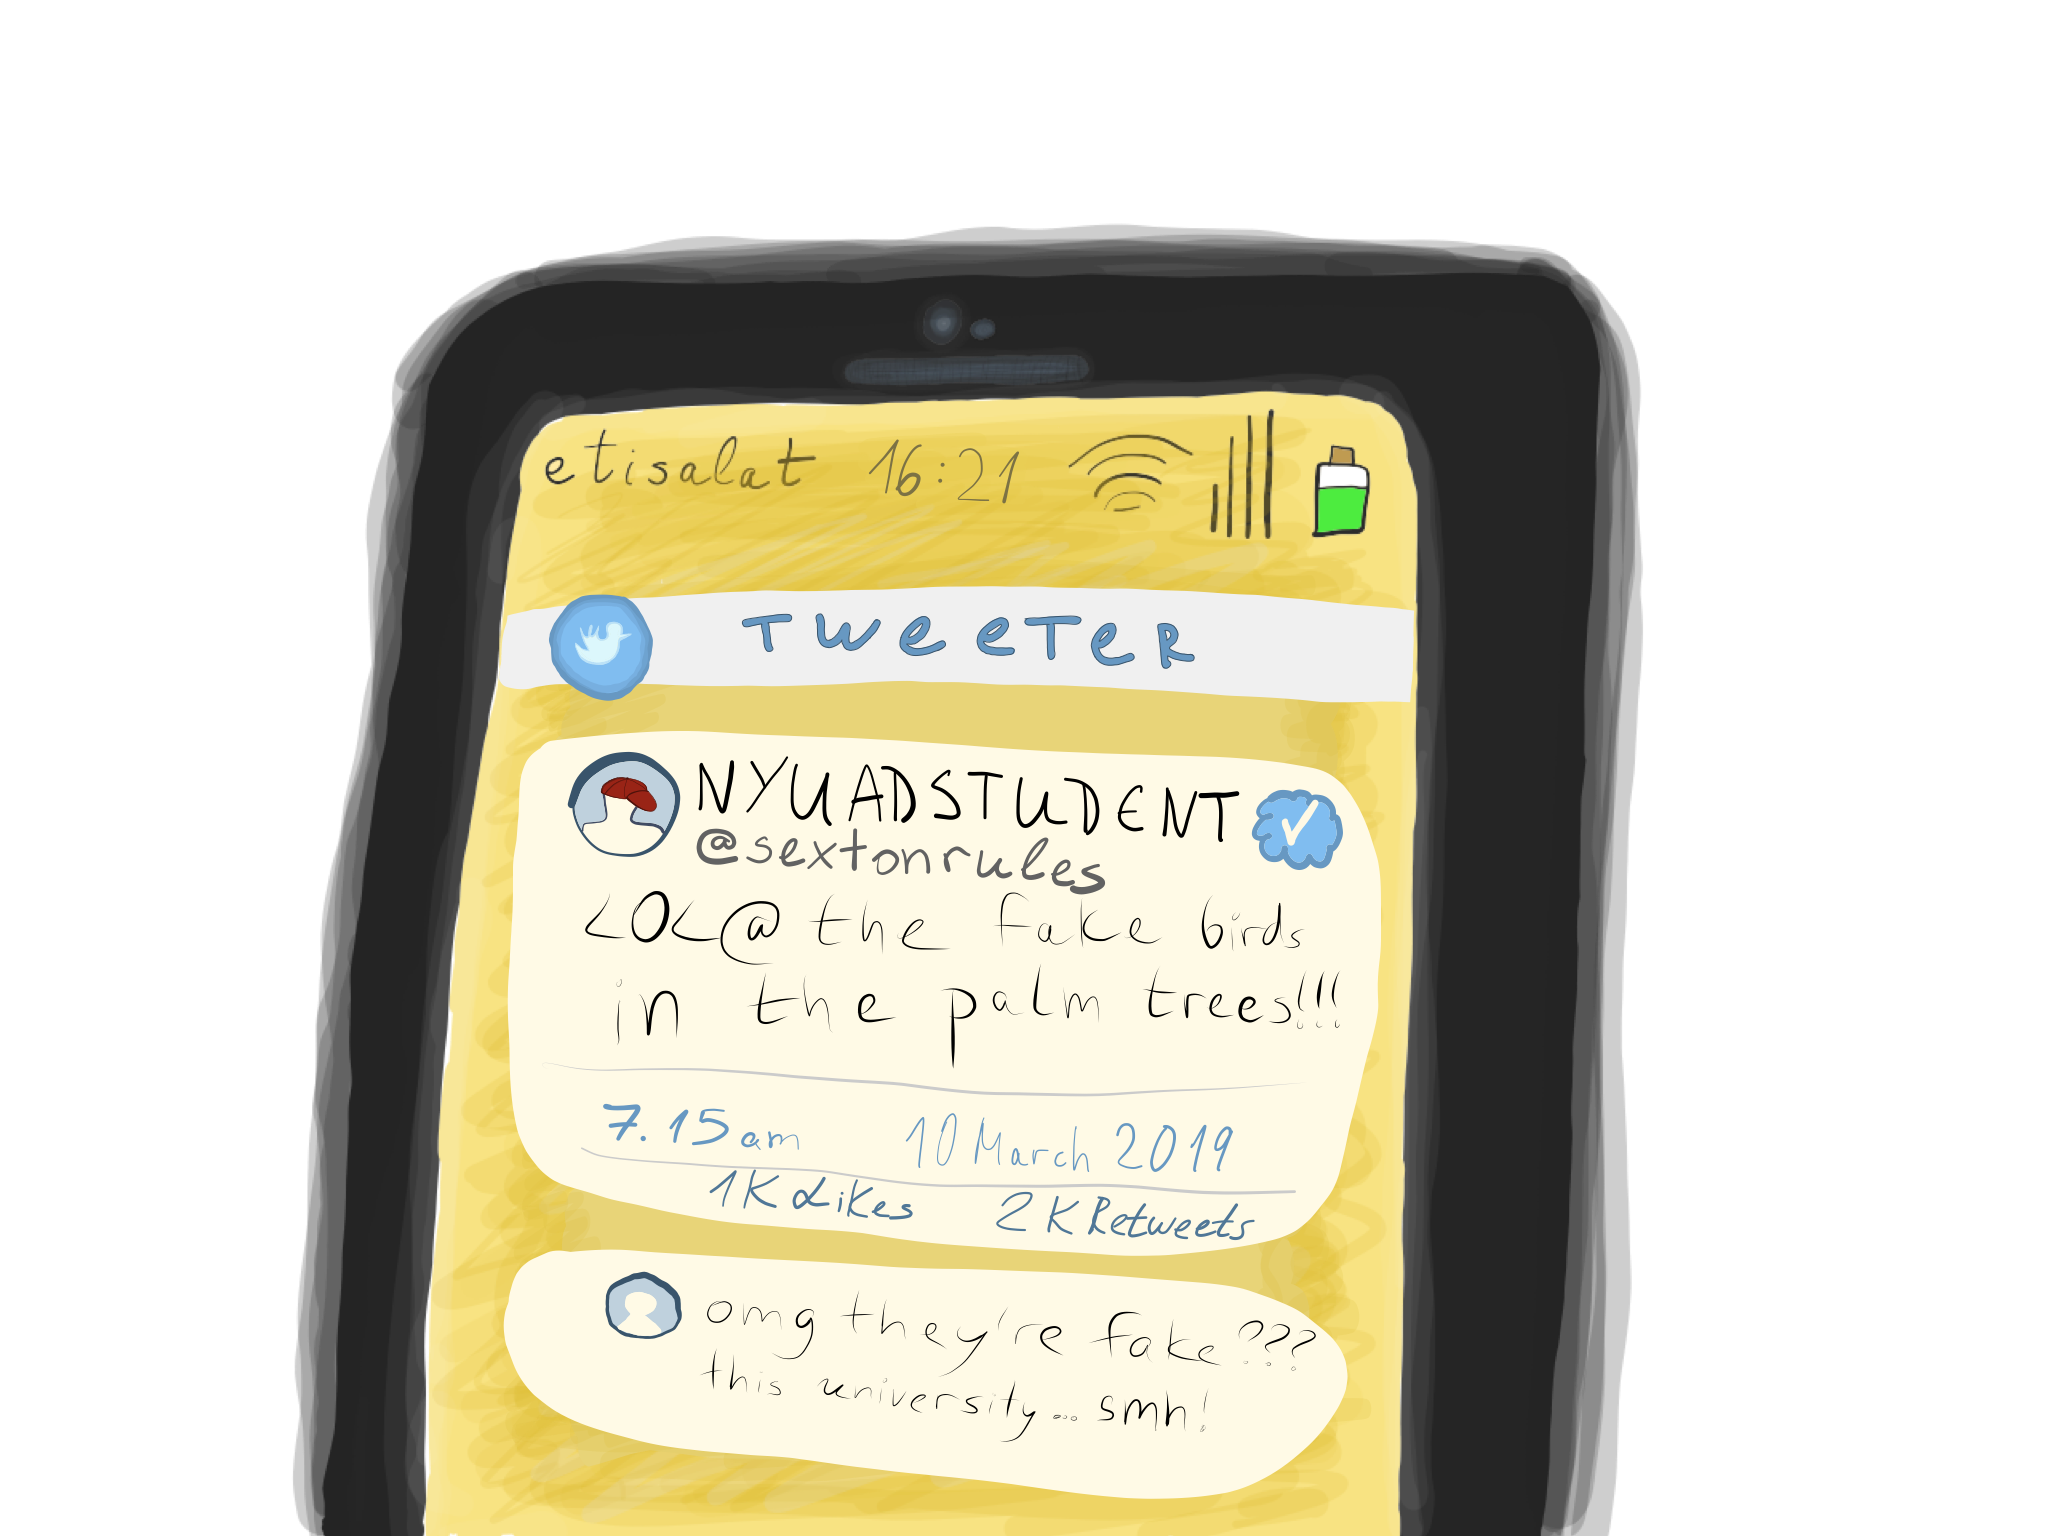 etisalat 16:21
TWEETER
NYUADSTUDENT
@sextonrules
LOL@ the fake birds
in the palm trees!!!
7.15am 10 March 2019
1K Likes 2K Retweets
omg they're fake???
this university... smh!